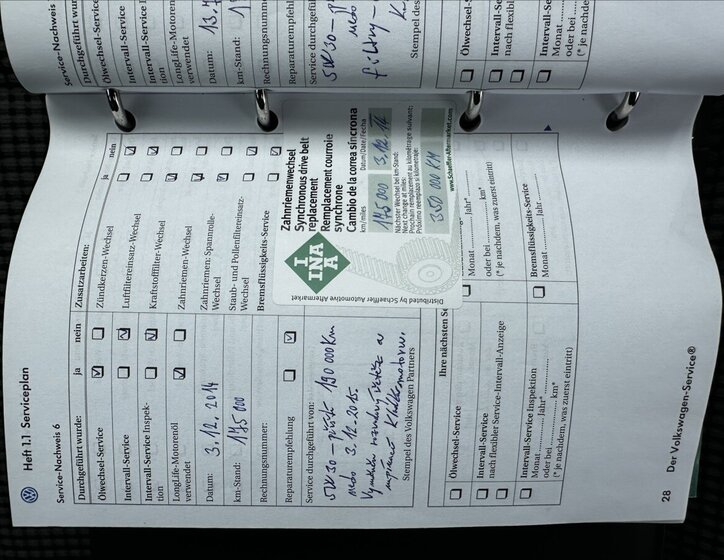 Heft 1.1 Serviceplan
Service-Nachweis 6
Durchgeführt wurde: ja nein
Ölwechsel-Service
Intervall-Service
Intervall-Service Inspek-
tion
LongLife-Motorenöl
verwendet
Datum: 3.12.2014
km-Stand: 175 000
Rechnungsnummer:
Reparaturempfehlung
Service durchgeführt von:
5W30 190 000 Km
3.12.2015.
Stempel des Volkswagen Partners
Zusatzarbeiten: ja nein
Zündkerzen-Wechsel
Luftfiltereinsatz-Wechsel
Kraftstofffilter-Wechsel
Zahnriemen-Wechsel
Zahnriemen: Spannrolle-
Wechsel
Staub- und Pollenfiltereinsatz-
Wechsel
Bremsflüssigkeits-Service
Zahnriemenwechsel
Synchronous drive belt
replacement
Remplacement courroie
synchrone
Cambio de la correa síncrona
km/miles Datum/Date/Fecha
175 000 3.12.14
Nächster Wechsel bei km-Stand:
Next change at miles:
Prochain remplacement au kilométrage suivant:
Próximo reemplazo si kilometraje:
350 000 KM
www.Schaeffler-Aftermarket.com
INA
Distributed by Schaeffler Automotive Aftermarket
Ihre nächsten
Ölwechsel-Service
Intervall-Service
nach flexibler Service-Intervall-Anzeige
Intervall-Service Inspektion
Monat Jahr*
oder bei km*
(* je nachdem, was zuerst eintritt)
Monat Jahr*
oder bei km*
(* je nachdem, was zuerst eintritt)
Bremsflüssigkeits-Service
Monat Jahr
28 Der Volkswagen-Service®
Service-Nachweis
Durchgeführt
Ölwechsel-Service
Intervall-Service
Intervall-Service
tion
LongLife-Motorenöl
verwendet
Datum: 13.
km-Stand:
Rechnungsnummer
Reparaturempfehlung
Service durchgeführt
5W30
Stempel des
Ölwechsel-Service
Intervall-Service
nach flexibler
Intervall-Service
Monat
oder bei
(* je nachdem